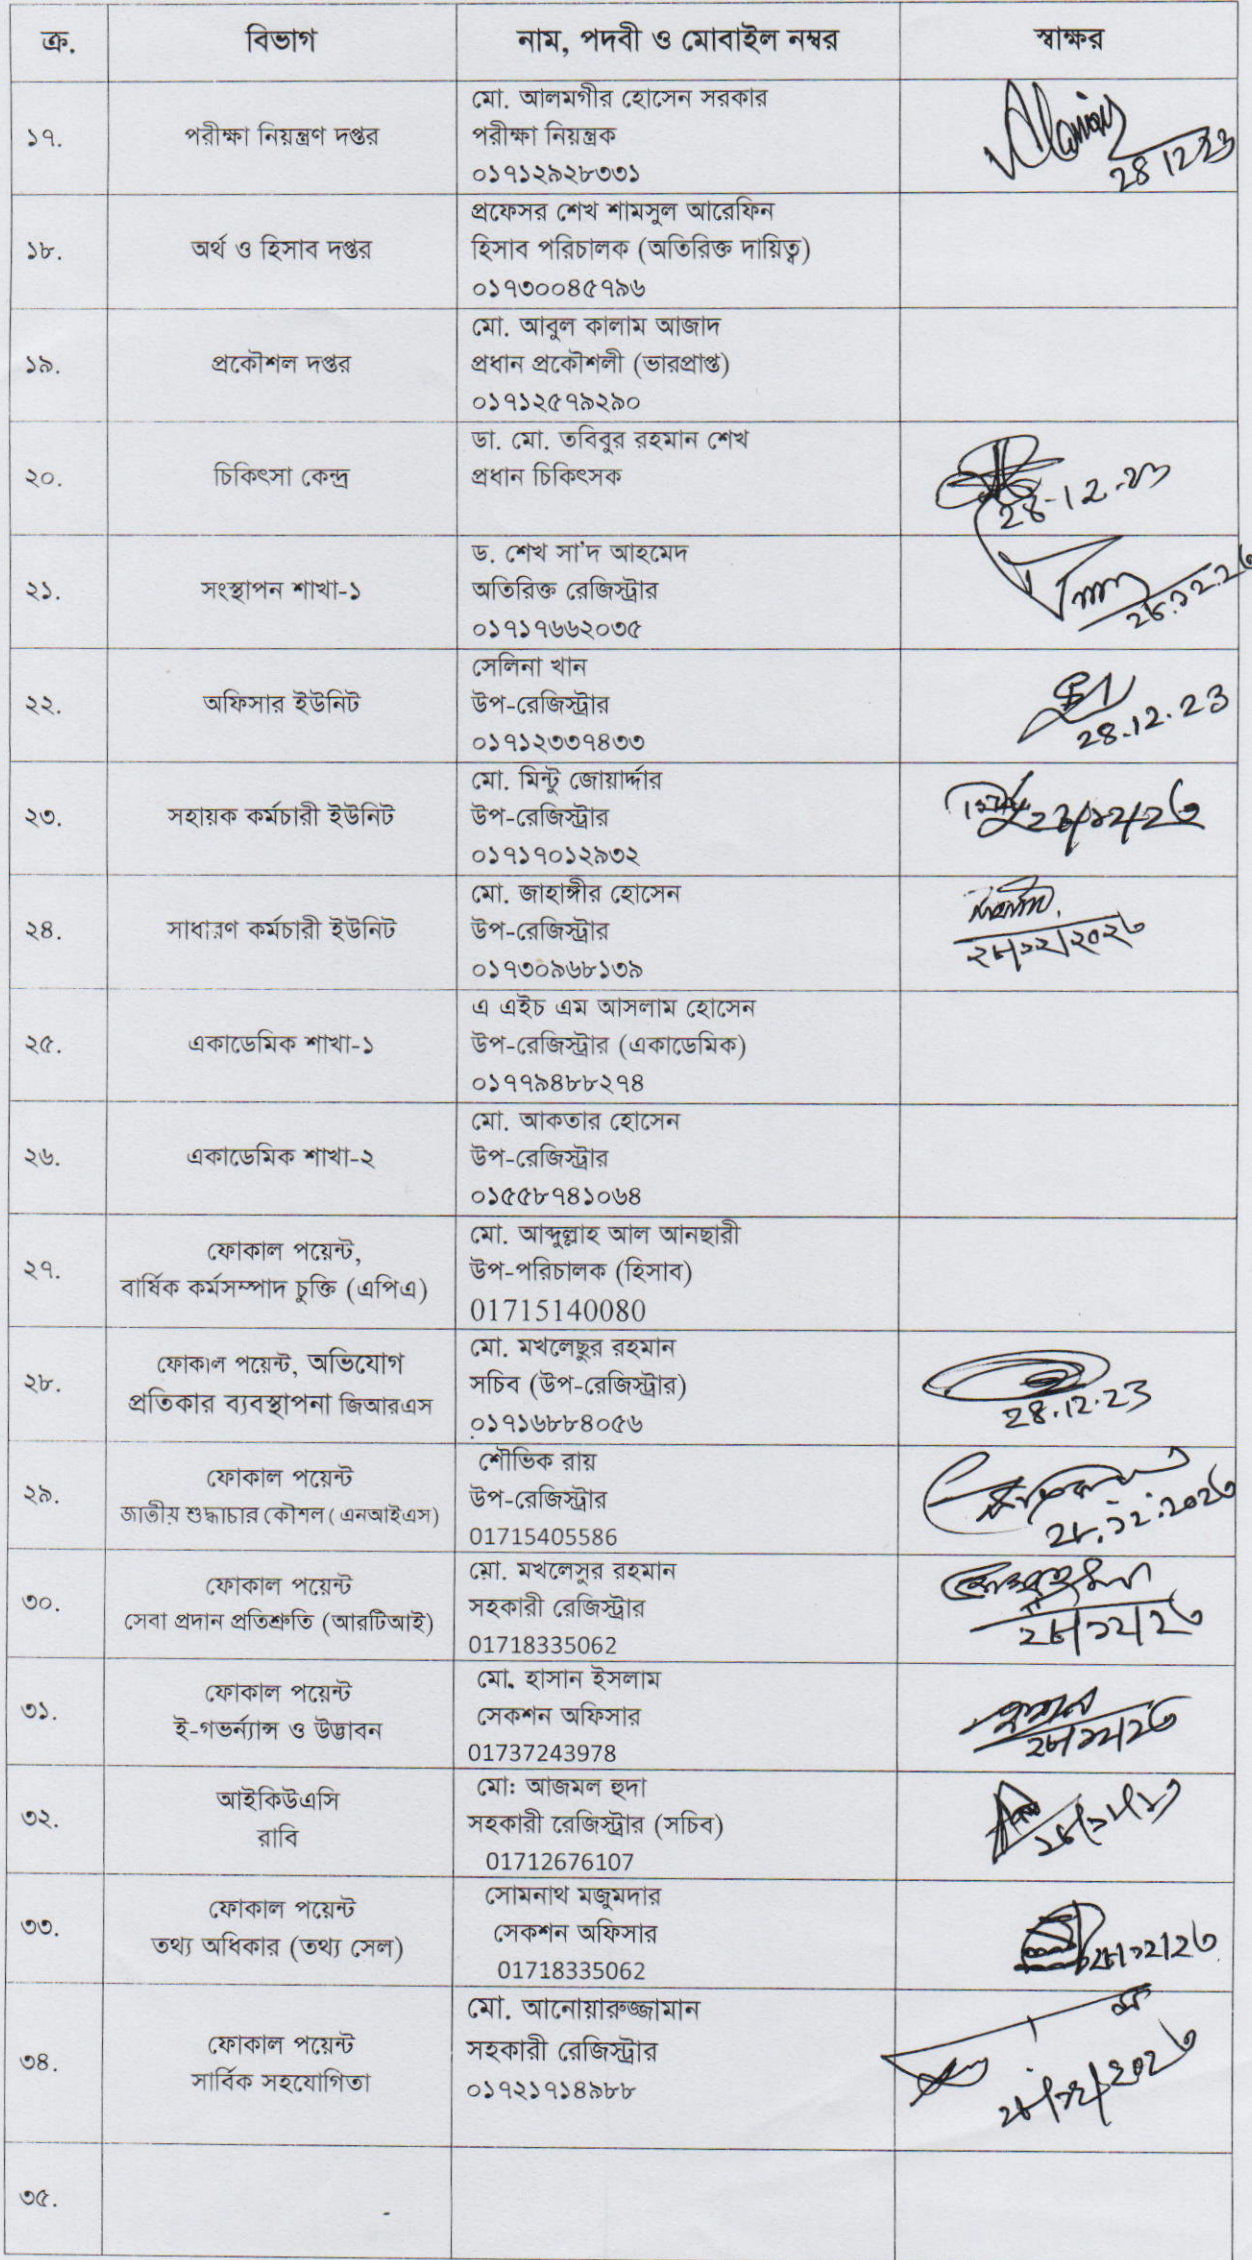 ক্র. বিভাগ নাম, পদবী ও মোবাইল নম্বর স্বাক্ষর
১৭. পরীক্ষা নিয়ন্ত্রণ দপ্তর
মো. আলমগীর হোসেন সরকার
পরীক্ষা নিয়ন্ত্রক
০১৭১২৯২৮৩৩১
28 12 23
১৮. অর্থ ও হিসাব দপ্তর
প্রফেসর শেখ শামসুল আরেফিন
হিসাব পরিচালক (অতিরিক্ত দায়িত্ব)
০১৭৩০০৪৫৭৯৬
১৯. প্রকৌশল দপ্তর
মো. আবুল কালাম আজাদ
প্রধান প্রকৌশলী (ভারপ্রাপ্ত)
০১৭১২৫৭৯২৯০
২০. চিকিৎসা কেন্দ্র
ডা. মো. তবিবুর রহমান শেখ
প্রধান চিকিৎসক
28-12-23
২১. সংস্থাপন শাখা-১
ড. শেখ সা'দ আহমেদ
অতিরিক্ত রেজিস্ট্রার
০১৭১৭৬৬২০৩৫
২৮.১২.২৩
২২. অফিসার ইউনিট
সেলিনা খান
উপ-রেজিস্ট্রার
০১৭১২৩৩৭৪৩৩
28.12.23
২৩. সহায়ক কর্মচারী ইউনিট
মো. মিন্টু জোয়ার্দ্দার
উপ-রেজিস্ট্রার
০১৭১৭০১২৯৩২
২৮/১২/২৩
২৪. সাধারণ কর্মচারী ইউনিট
মো. জাহাঙ্গীর হোসেন
উপ-রেজিস্ট্রার
০১৭৩০৯৬৮১৩৯
২৮/১২/২০২৩
২৫. একাডেমিক শাখা-১
এ এইচ এম আসলাম হোসেন
উপ-রেজিস্ট্রার (একাডেমিক)
০১৭৭৯৪৮৮২৭৪
২৬. একাডেমিক শাখা-২
মো. আকতার হোসেন
উপ-রেজিস্ট্রার
০১৫৫৮৭৪১০৬৪
২৭. ফোকাল পয়েন্ট,
বার্ষিক কর্মসম্পাদ চুক্তি (এপিএ)
মো. আব্দুল্লাহ আল আনছারী
উপ-পরিচালক (হিসাব)
01715140080
২৮. ফোকাল পয়েন্ট, অভিযোগ
প্রতিকার ব্যবস্থাপনা জিআরএস
মো. মখলেছুর রহমান
সচিব (উপ-রেজিস্ট্রার)
০১৭১৬৮৮৪০৫৬
28.12.23
২৯. ফোকাল পয়েন্ট
জাতীয় শুদ্ধাচার কৌশল ( এনআইএস)
শৌভিক রায়
উপ-রেজিস্ট্রার
01715405586
২৮.১২.২০২৩
৩০. ফোকাল পয়েন্ট
সেবা প্রদান প্রতিশ্রুতি (আরটিআই)
মো. মখলেসুর রহমান
সহকারী রেজিস্ট্রার
01718335062
২৮/১২/২৩
৩১. ফোকাল পয়েন্ট
ই-গভর্ন্যান্স ও উদ্ভাবন
মো. হাসান ইসলাম
সেকশন অফিসার
01737243978
২৮/১২/২৩
৩২. আইকিউএসি
রাবি
মো: আজমল হুদা
সহকারী রেজিস্ট্রার (সচিব)
01712676107
৩৩. ফোকাল পয়েন্ট
তথ্য অধিকার (তথ্য সেল)
সোমনাথ মজুমদার
সেকশন অফিসার
01718335062
২৮/১২/২৩
৩৪. ফোকাল পয়েন্ট
সার্বিক সহযোগিতা
মো. আনোয়ারুজ্জামান
সহকারী রেজিস্ট্রার
০১৭২১৭১৪৯৮৮
২৮/১২/২০২৩
৩৫.